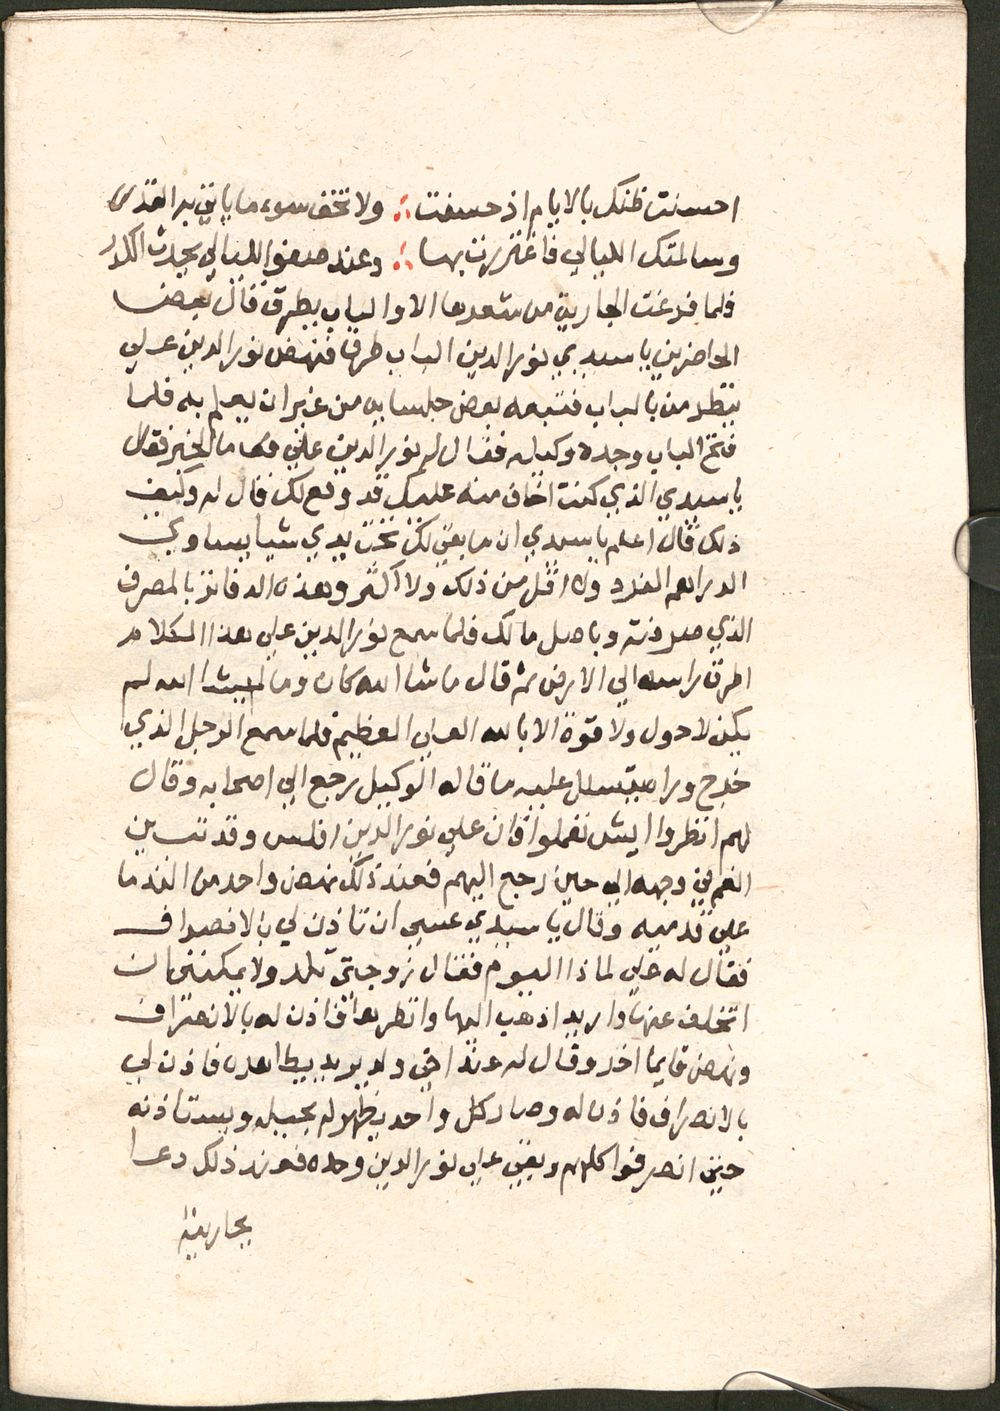 احسنت ظنك بالايام اذ حسنت ؞ ولا تخف سوء ما ياتي به القدر
وسالمتك الليالي فاغتررت بها ؞ وعند صفو الليالي يحدث الكدر
فلما فرغت الجارية من شعرها الا والباب يطرق فقال بعض
الحاضرين يا سيدي نور الدين الباب طرق فنهض نور الدين علي
ينظر من بالباب فتبعه بعض جلسايه من غير ان يعلم به فلما
فتح الباب وجده وكيله فقال له نور الدين علي ما الخبر فقال
يا سيدي الذي كنت اخاف منه عليك قد وقع لك قال له وكيف
ذلك قال اعلم يا سيدي ان ما بقي لك تحت يدي شيا يساوي
الدراهم الفرد ولا اقل من ذلك ولا اكثر وهذه الدفاتر بالمصرف
الذي صرفته وباصل مالك فلما سمع نور الدين علي هذا الكلام
اطرق براسه الي الارض ثم قال ما شا الله كان وما لم يشا الله لم
يكن لا حول ولا قوة الا بالله العلي العظيم فلما سمع الرجل الذي
خرج وراه يتسلل عليه ما قاله الوكيل رجع الي اصحابه وقال
لهم انظروا ايش تفعلوا فان علي نور الدين افلس وقد تبين
الغم في وجهه الي حين رجع اليهم فعند ذلك نهض واحد من الندما
علي قدميه وقال يا سيدي عسي ان تاذن لي بالانصراف
فقال له علي لماذا اليوم فقال زوجتي تلد ولا يمكنني ان
اتخلف عنها واريد اذهب اليها وانظرها فاذن له بالانصراف
ونهض قايما اخر وقال له عند اخي ولد يريد يطاهره فاذن لي
بالانصراف فاذن له وصار كل واحد يظهر له بحيله ويستاذنه
حتي انصرفوا كلهم وبقي علي نور الدين وحده فعند ذلك دعا
بجاريته